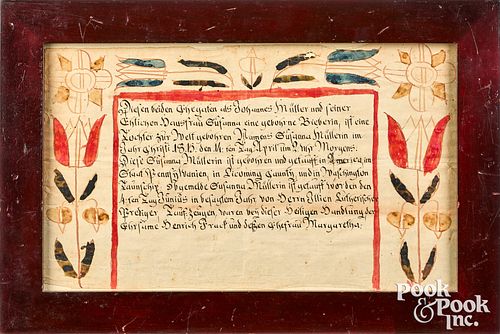 Diesen beiden Ehegaten als Johannes Müller und seiner
Ehlichen Hausfrau Susanna eine gebohrne Bieberin, ist eine
Tochter zur Welt gebohren Namens Susanna Müllerin im
Jahr Christi 1815. den 14. ten Tag April um 2 Uhr Morgens.
Diese Susanna Müllerin ist gebohren und getauft in America, im
Staat Pennsylvanien, in Licoming Caunty und in Waschington
Taunschip. Obgemelde Susanna Müllerin ist getauft worden den
4. ten Tag Junius in besagtem Jahr von Herrn Illien Lutherischer
Prediger Taufzeugen waren bey dieser Heiligen Handlung der
Ehrsame Henrich und deßen Ehefrau Margaretha.
Pook
& Pook
Inc.